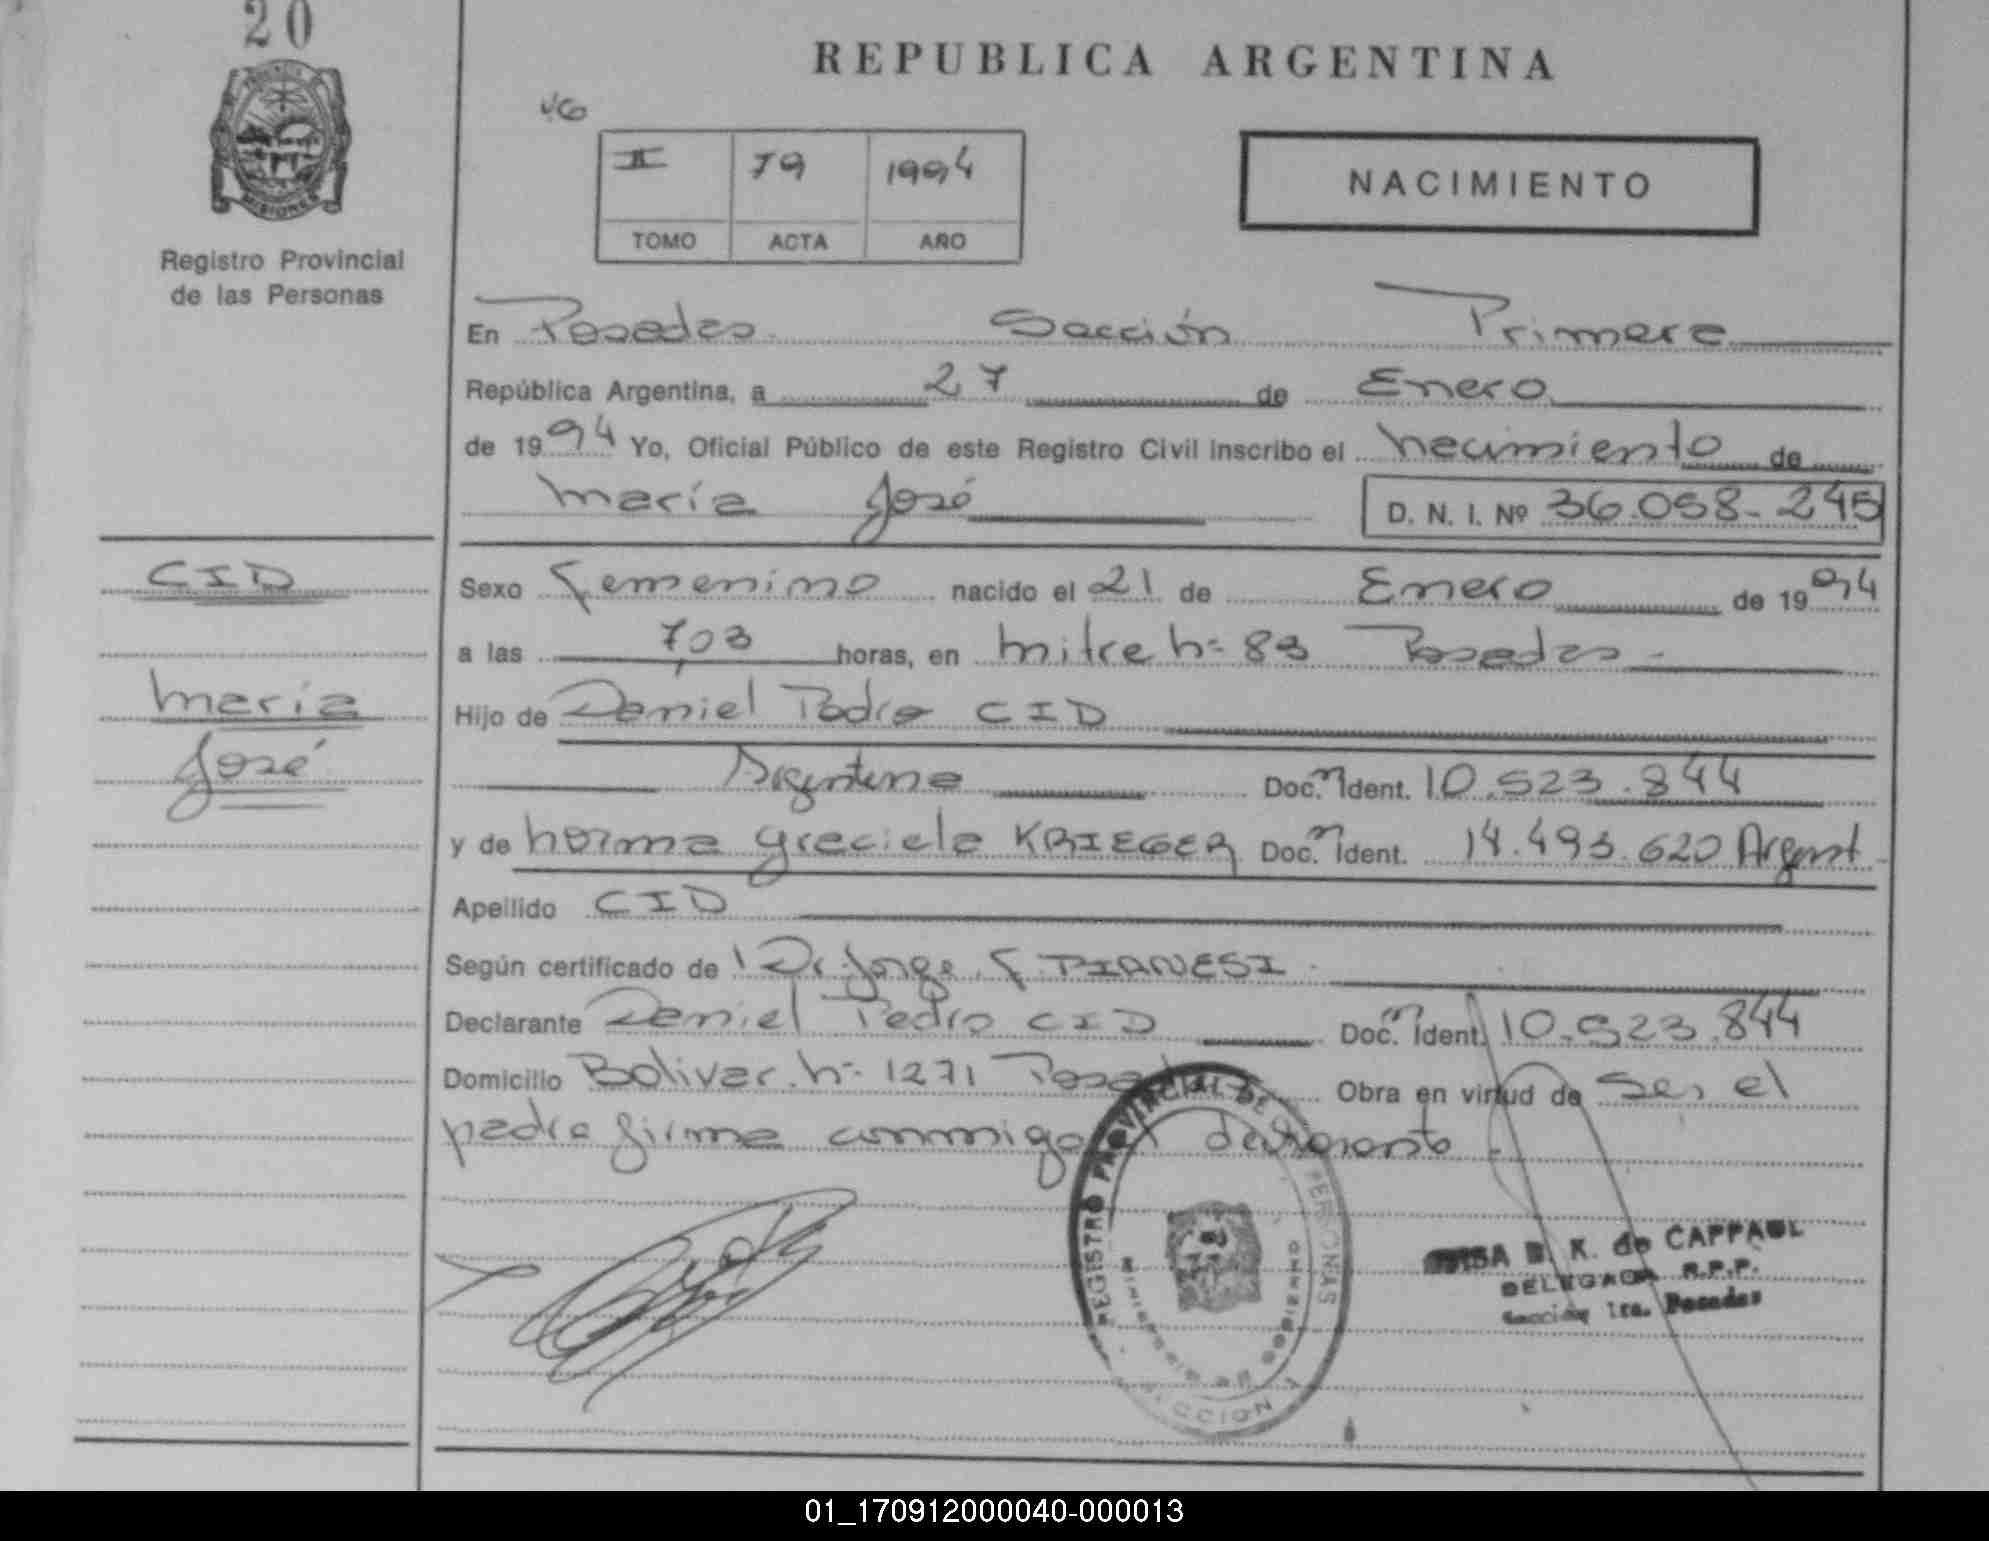 20
MISIONES
Registro Provincial
de las Personas
REPUBLICA ARGENTINA
II 79 1994
TOMO ACTA AÑO
NACIMIENTO
En Posadas Sección Primera
República Argentina, a 27 de Enero
de 1994 Yo, Oficial Público de este Registro Civil inscribo el nacimiento de
María José D. N. I. Nº 36.058-245
CID
María
José
Sexo femenino nacido el 21 de Enero de 1994
a las 7,03 horas, en Mitre Nº 83 Posadas
Hijo de Daniel Pedro CID
Argentino Doc. Ident. 10.523.844
y de Norma Graciela KRIEGER Doc. Ident. 14.493.620 Argent
Apellido CID
Según certificado de Dr Jorge F PIANESI
Declarante Daniel Pedro CID Doc. Ident. 10.523.844
Domicilio Bolivar Nº 1271 Posadas Obra en virtud de Ser el
padre firma conmigo el declarante
REGISTRO PROVINCIAL DE PERSONAS
MINISTERIO DE
K. de CAPPAUL
DELEGADA R.P.P.
Sección 1ra. Posadas
01_170912000040-000013